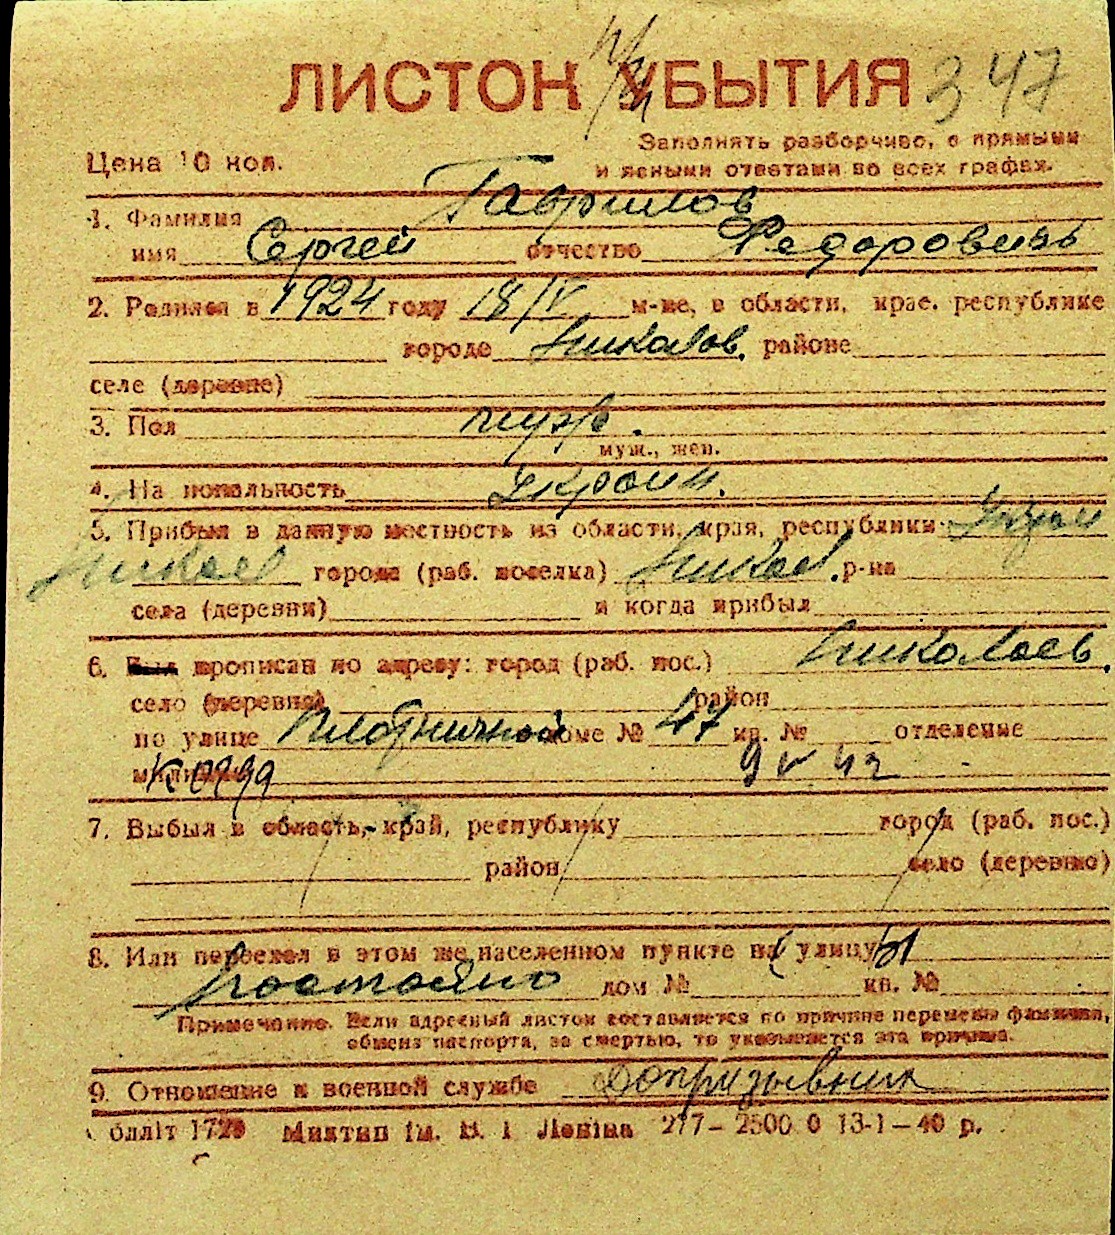 ЛИСТОК УБЫТИЯ 347
Цена 10 коп.
Заполнять разборчиво, с прямыми
и ясными ответами во всех графах.
1. Фамилия Гаврилов
имя Сергей отчество Федорович
2. Родился в 1924 году 18/V м-це, в области, крае, республике
городе Николаев. районе
селе (деревне)
3. Пол муж.
муж., жен.
4. Национальность Украин.
5. Прибыл в данную местность из области, края, республики Украи
Николаев города (раб. поселка) Николаев. р-на
села (деревни) и когда прибыл
6. Был прописан по адресу: город (раб. пос.) Николаев.
село (деревня) район
по улице Плотничной доме № 47 кв. № отделение
милиции когда 9 V 42
7. Выбыл в область, край, республику город (раб. пос.)
район село (деревню)
8. Или переехал в этом же населенном пункте на улицу
постоянно дом № кв. №
Примечание. Если адресный листок составляется по причине перемены фамилии,
обмена паспорта, за смертью, то указывается эта причина.
9. Отношение к военной службе допризывник
облліт 1720 Миктип ім. В. І Леніна 217–2500 0 13-1–40 р.